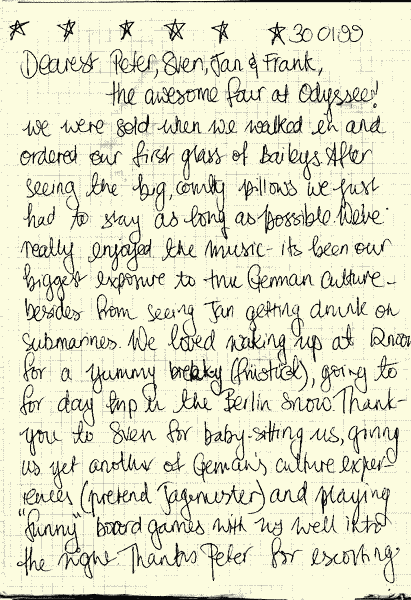 30 01 99
Dearest Peter, Sven, Jan & Frank,
the awesome four at Odyssee!
we were sold when we walked in and
ordered our first glass of Baileys. After
seeing the big, comfy pillows we just
had to stay as long as possible. We've
really enjoyed the music - its been our
biggest exposure to true German culture -
besides from seeing Jan getting drunk on
submarines. We loved waking up at 12 noon
for a yummy brekky (früstück), going to
for day trip in the Berlin snow. Thank-
you to Sven for baby-sitting us, giving
us yet another of German's culture exper-
iences (pretend Jagermister) and playing
"funny" board games with us well into
the night. Thanks Peter for escorting